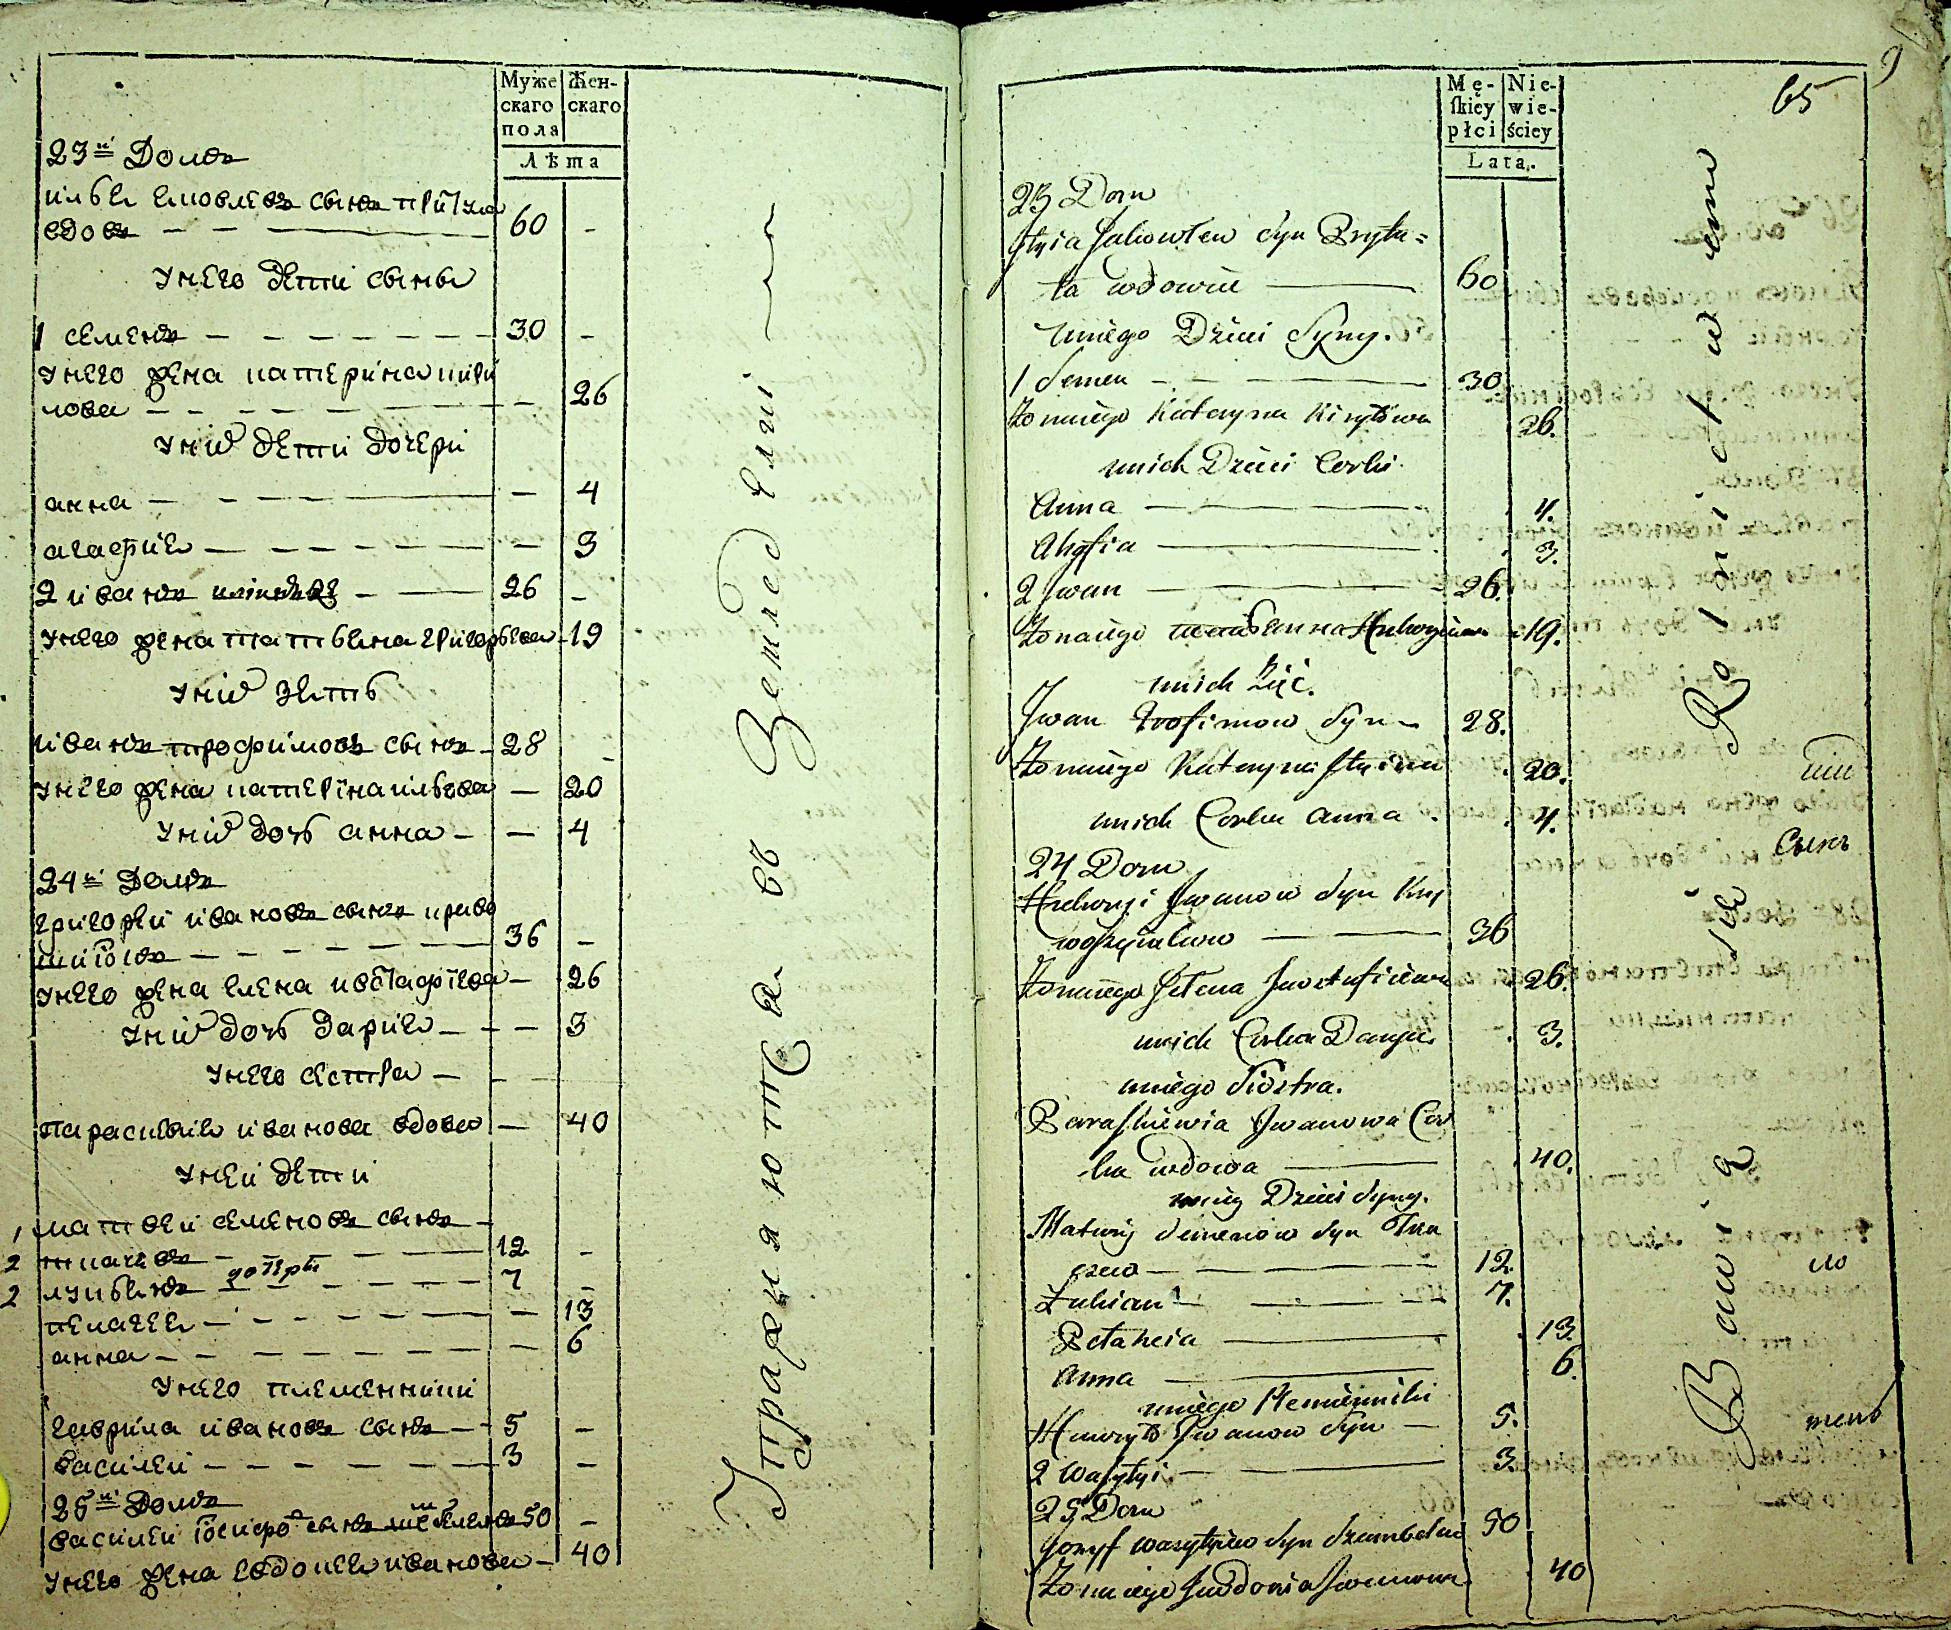 Муже
скаго
пола
Жен-
скаго
Лѣта
23й Домъ
илья емовлевъ сынъ притула
вдовъ — — — 60 -
унего дети сыны
1 семенъ — — — 30 -
унего жена катерина кири
лова — — — 26
уних дети дочери
анна — — — 4
агафия — — — 3
2 иванъ — — 26 -
унего жена татьяна григорьева - 19
уних зять
иванъ трофимовъ сынъ - 28 -
унего жена катеріна ильова — 20
уних дочь анна - — 4
24й Домъ
григорей ивановъ сынъ криво
шиіовъ — — — 36 -
унего жена елена иевстафіева — 26
уних дочь дария — - — 3
унего сестра — -
параскевия иванова вдова — 40
уней дети
1 матвей семеновъ сынъ -
ткачевъ — — — 12 -
2 лукьянъ — — — 7 -
дочери
пелагея — — — 13
анна — — — 6
унего племенники
гаврила ивановъ сынъ — 5 -
василей — — — 3 -
25й Домъ
василей іосифо сынъ 50 -
унего жена евдокея иванова — 40
Упражняютца въ Земледелиі
65
Mę-
skiey
płci
Nie-
wie-
ściey
Lata.
23 Dom
Ilyia Jakowlew syn Pryłu=
ła wdowiec — 60
uniego Dzieci Syny.
1 Semen — — 30
Żona iego Kateryna Kiryłowa 26.
unich Dzieci Corki
Anna — — 4.
Ahafia — — 3.
2 Iwan — — 26.
Żona iego Hrehoryiewa 19.
unich Zięć.
Iwan Trofimow Syn — 28.
Żona iego Kateryna Ilyina 20.
unich Corka Anna . 4.
24 Dom
Hrehoryi Iwanow Syn Kry
— 36
Żona iego Jelena Jwstafiiewa 26.
unich Corka Darya. 3.
uniego Siostra.
Paraskiewia Iwanowa Cor
ka wdowa — 40.
uniey Dzieci Syny.
Matwiy Semenow Syn Tka
czew — — 12.
Łukian — — 7.
Pelaheia — — 13.
Anna — — 6.
uniego Plemienniki
Hawryło Iwanow Syn — 5.
2 Wasylyi — — 3.
25 Dom
Jozyf Wasylyiew Syn 50
Żona iego Jewdokia Iwanowa 40
Bawią się Rolnictwem
сынъ